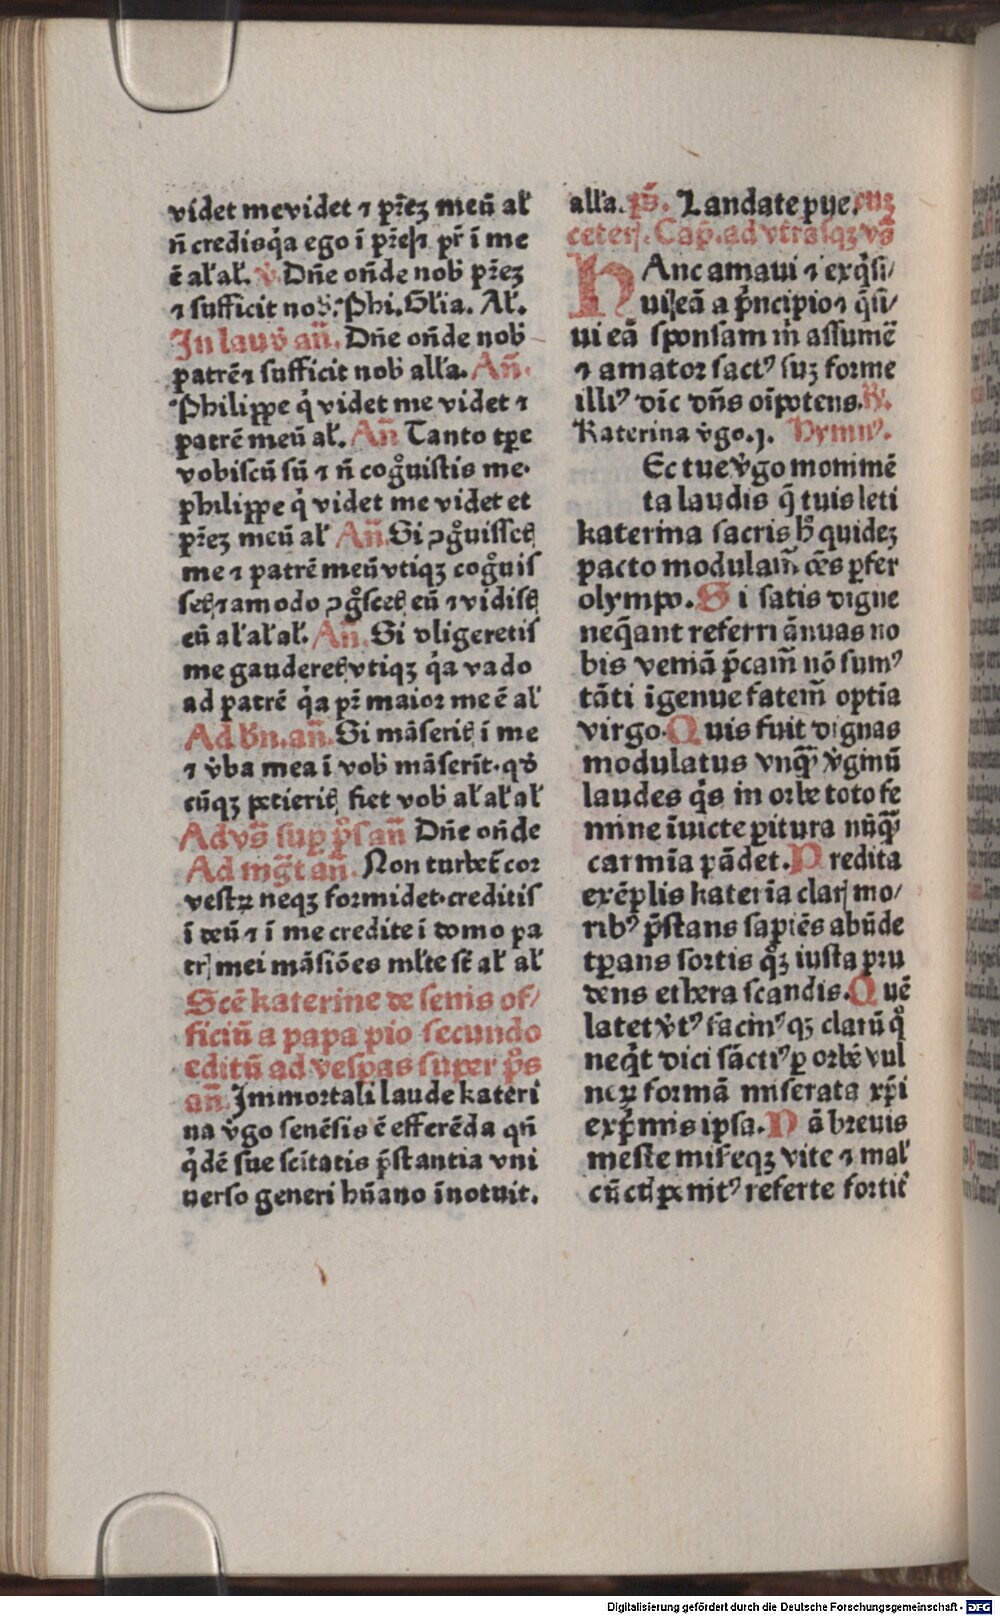 videt me videt ⁊ pr̄eꝫ meū al̄
n̄ credis qͥa ego ī pr̄e ⁊ pr̄ ī me
ē al̄ al̄. ℣. Dn̄e on̄de nob̄ pr̄eꝫ
⁊ sufficit nob̄. Phi. Gl̄ia. Al̄.
In laud̄ an̄. Dn̄e on̄de nob̄
patrē ⁊ sufficit nob̄ all̄a. An̄.
Philippe qͥ videt me videt ⁊
patrē meū al̄. An̄ Tanto tꝑe
vobiscū sū ⁊ n̄ cogͦuistis me.
philippe qͥ videt me videt et
pr̄eꝫ meū al̄ An̄. Si ꝯgͦuissetꝭ
me ⁊ patrē meū vtiqꝫ cogͦuis
setꝭ ⁊ amodo ꝯgͦscetꝭ eū ⁊ vidistꝭ
eū al̄ al̄ al̄. An̄. Si diligeretis
me gauderetꝭ vtiqꝫ qͥa vado
ad patrē qͥa pr̄ maior me ē al̄
Ad bn̄. an̄. Si māseritꝭ ī me
⁊ v̄ba mea ī vob̄ māserīt. qd̄
cūqꝫ petieritꝭ fiet vob̄ al̄ al̄ al̄
Ad vs̄ sup̄ pͦs an̄ Dn̄e on̄de
Ad mḡt an̄. Non turbet̄ cor
vestꝝ neqꝫ formidet. creditis
ī deū ⁊ ī me credite ī domo pa
trꝭ mei māsiōes ml̄te st̄ al̄ al̄
Scē katerine de senis of/
ficiū a papa pio secundo
editū ad vespas super pͦs
an̄. Immortali laude kateri
na v̄go senēsis ē efferēda qn̄
qͥdē sue scītatis p̄stantia vni
uerso generi hūano īnotuit.
all̄a. pͦs. Laudate pue. cuꝫ
ceterꝭ. Cap̄. ad vtrasqꝫ vs̄
HAnc amaui ⁊ exqͥsi/
ui eā a pͥncipio ⁊ qͥsi/
ui eā sponsam m̄ assumē
⁊ amator factꝰ suꝫ forme
illiꝰ dic̄ dn̄s oīpotens. ℟.
Katerina v̄go. j. Hymnꝰ.
Ec tue v̄go monimē
ta laudis q̄ tuis leti
katerina sacris hͦ quideꝫ
pacto modulam̄ oēs ꝑfer
olympo. Si satis digne
neqͣant referri ānuas no
bis veniā p̄cam̄ nō sumꝰ
tāti īgenue fatem̄ optīa
virgo. Quis fuit dignas
modulatus vnqͣꝫ v̄ginū
laudes qͥs in orbe toto fe
mine īuicte ꝑitura nūqͣꝫ
carmīa pādet. Predita
exēplis katerīa clarꝭ mo/
ribꝰ p̄stans sapiēs abūde
tꝑans fortis qͦꝫ iusta pru
dens ethera scandis. Quē
latet v̄tꝰ facinꝰ qꝫ clarū qͦ
neqͥt dici sāctiꝰ ꝑ orbē vul
neꝝ formā miserata xp̄i
exp̄mis ipsa. Nā breuis
meste miseqꝫ vite ⁊ mal̄
cūctꝭ penitꝰ referte fortit̄
Digitalisierung gefördert durch die Deutsche Forschungsgemeinschaft - DFG